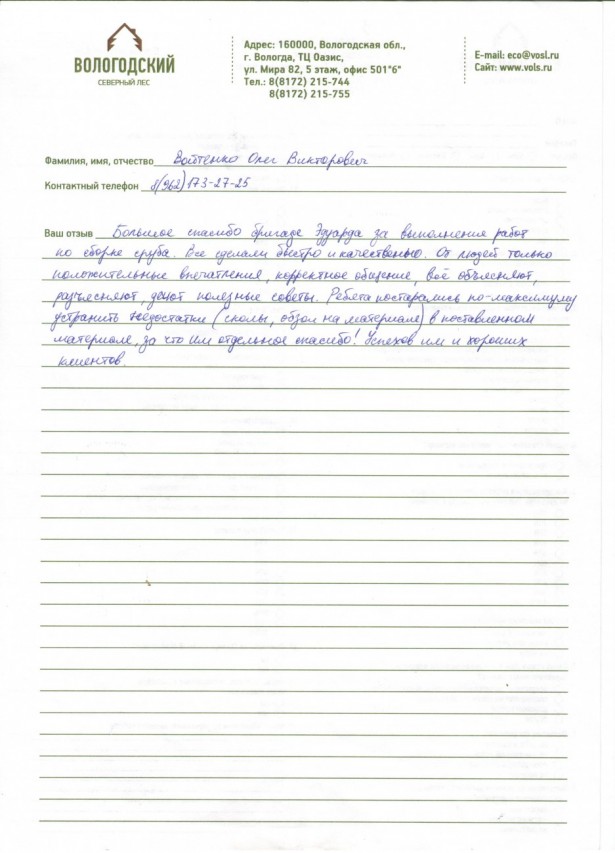 ВОЛОГОДСКИЙ
СЕВЕРНЫЙ ЛЕС
Адрес: 160000, Вологодская обл.,
г. Вологда, ТЦ Оазис,
ул. Мира 82, 5 этаж, офис 501"6"
Тел.: 8(8172) 215-744
8(8172) 215-755
E-mail: eco@vosl.ru
Сайт: www.vols.ru
Фамилия, имя, отчество Войтенко Олег Викторович
Контактный телефон 8(962)173-27-25
Ваш отзыв Большое спасибо бригаде Эдуарда за выполнения работ
по сборке сруба. Все сделали быстро и качественно. От людей только
положительные впечатления, корректное общение, всё объясняют,
разъясняют, дают полезные советы. Ребята постарались по-максимуму
устранить недостатки (сколы, обзол на материале) в поставленном
материале, за что им отдельное спасибо! Успехов им и хороших
клиентов.